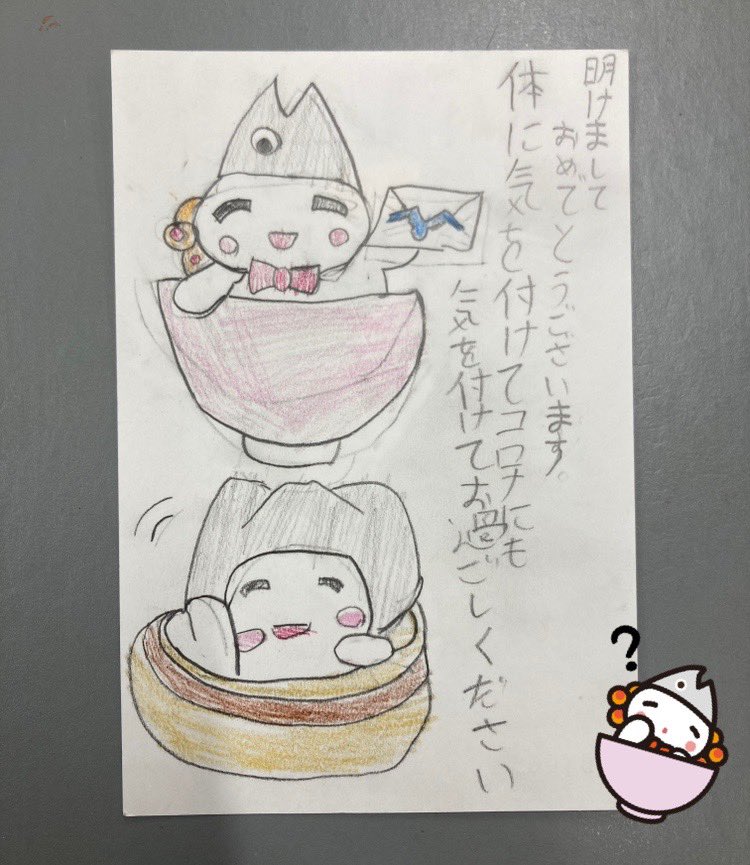 明けまして
おめでとうございます。
体に気を付けてコロナにも
気を付けてお過ごしください
?